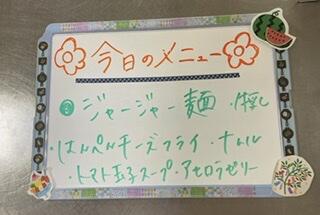 今日のメニュー
ジャージャー麺
・はんぺんチーズフライ ・ナムル
・トマト玉子スープ ・アセロラゼリー